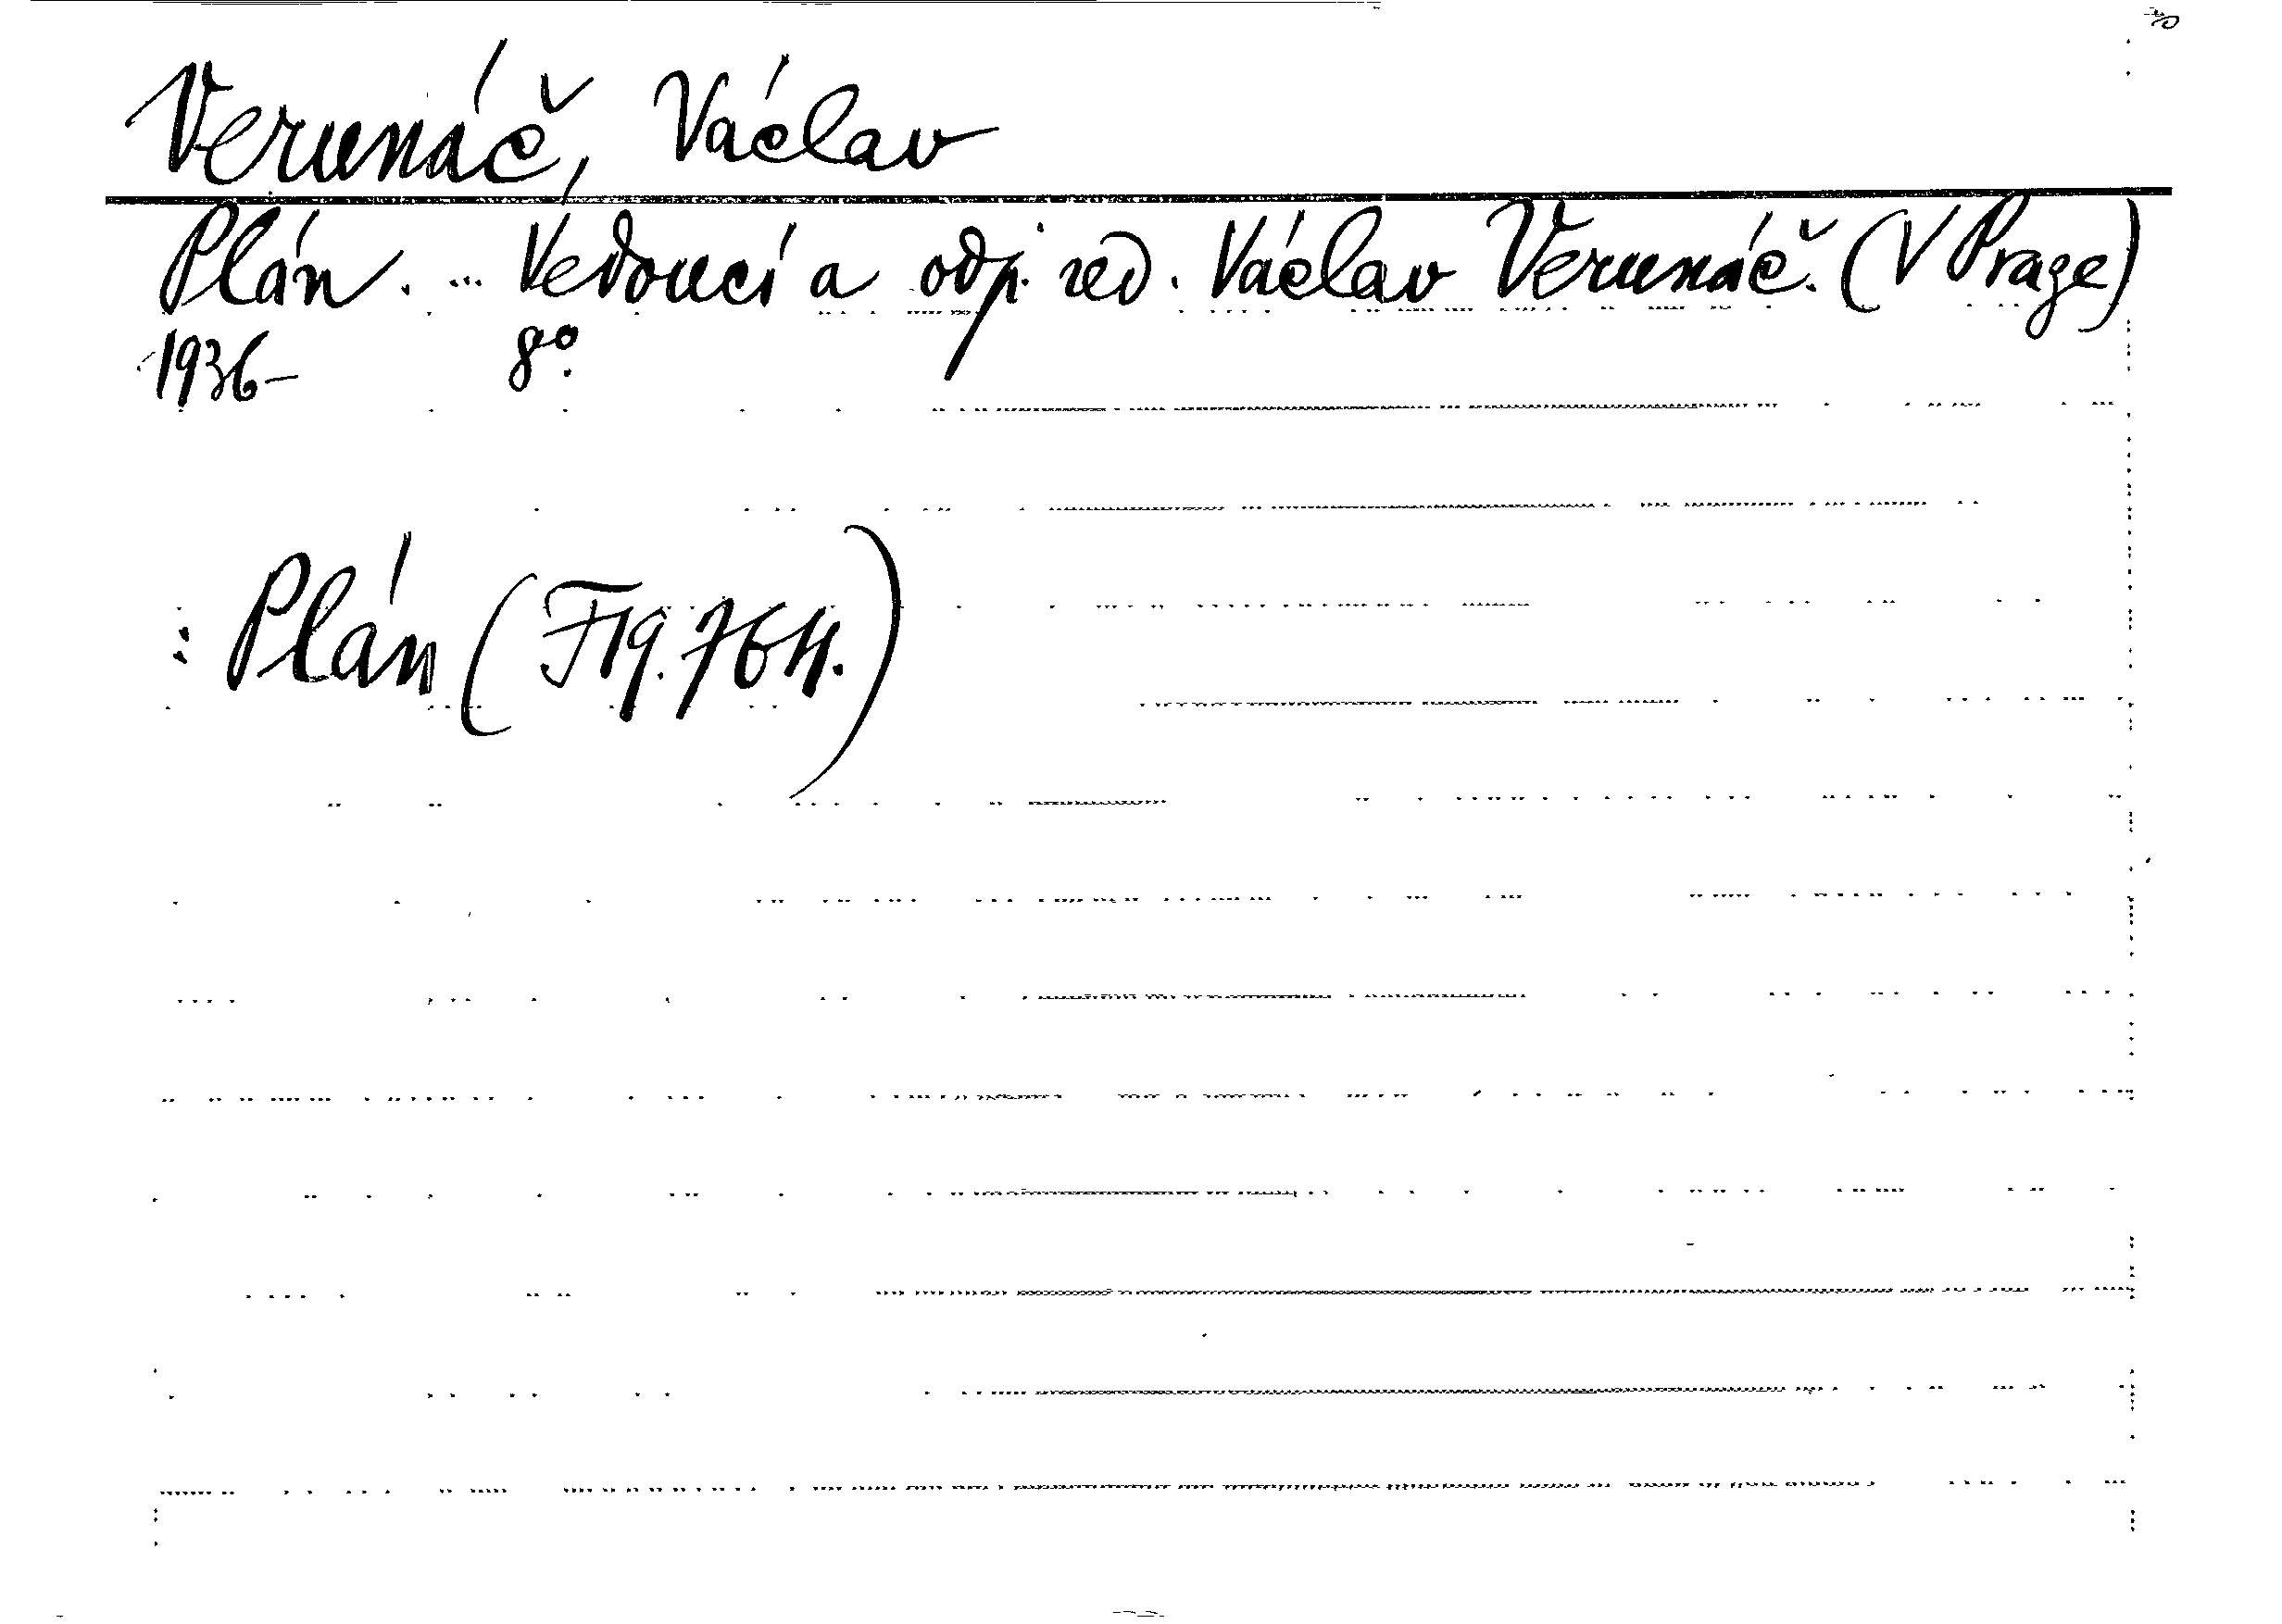 Verunáč, Václav
Plán. ... Vedoucí a odp. red. Václav Verunáč. (V Praze)
1936- 8º.
: Plán (F19.764.)